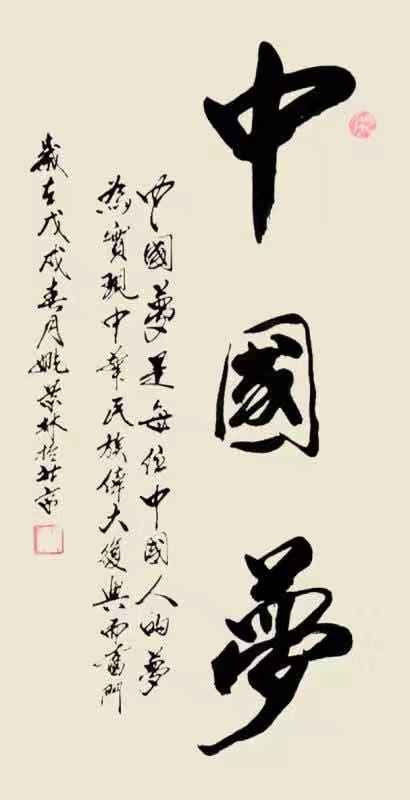 中國夢
中國夢是每位中國人的夢
為實現中華民族偉大復興而奮鬥
歲在戊戌春月姚景林於北京